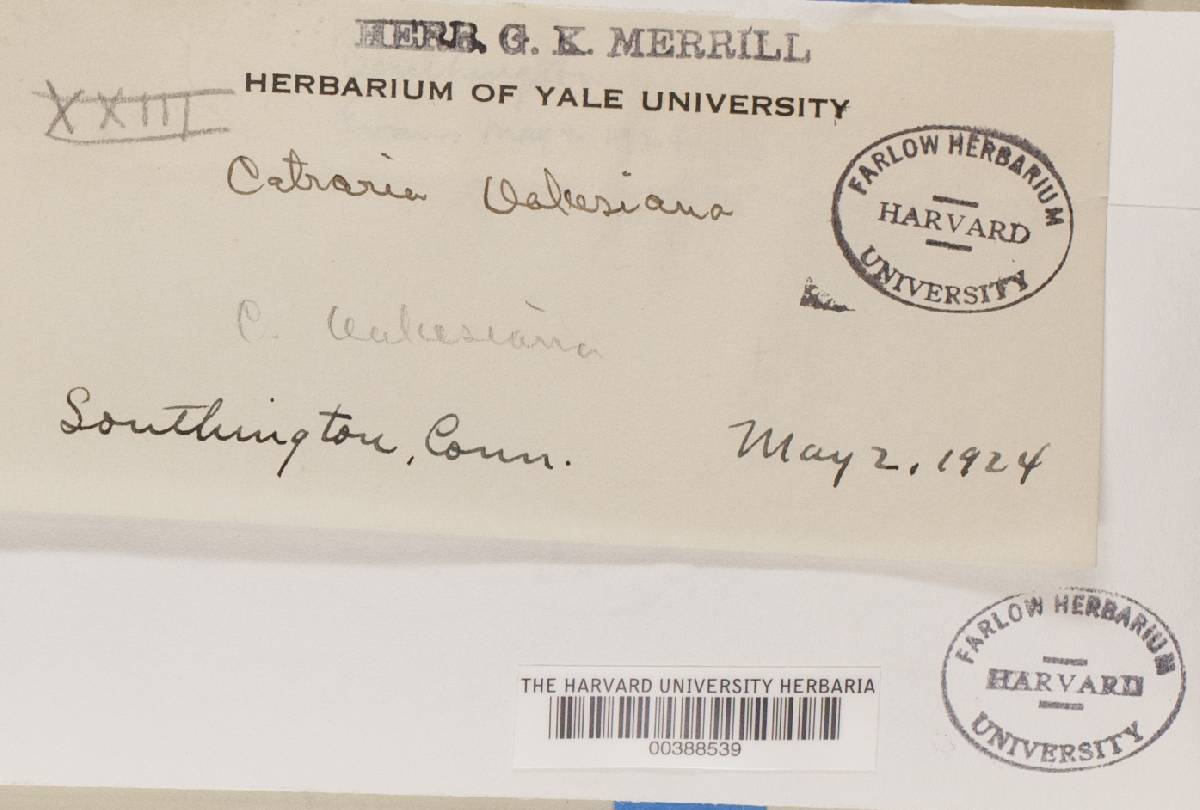 HERB. G. K. MERRILL
HERBARIUM OF YALE UNIVERSITY
XXIII
Cetraria Oakesiana
FARLOW HERBARIUM
HARVARD
UNIVERSITY
C. Oakesiana
Southington, Conn. May 2, 1924
FARLOW HERBARIUM
HARVARD
UNIVERSITY
THE HARVARD UNIVERSITY HERBARIA
00388539